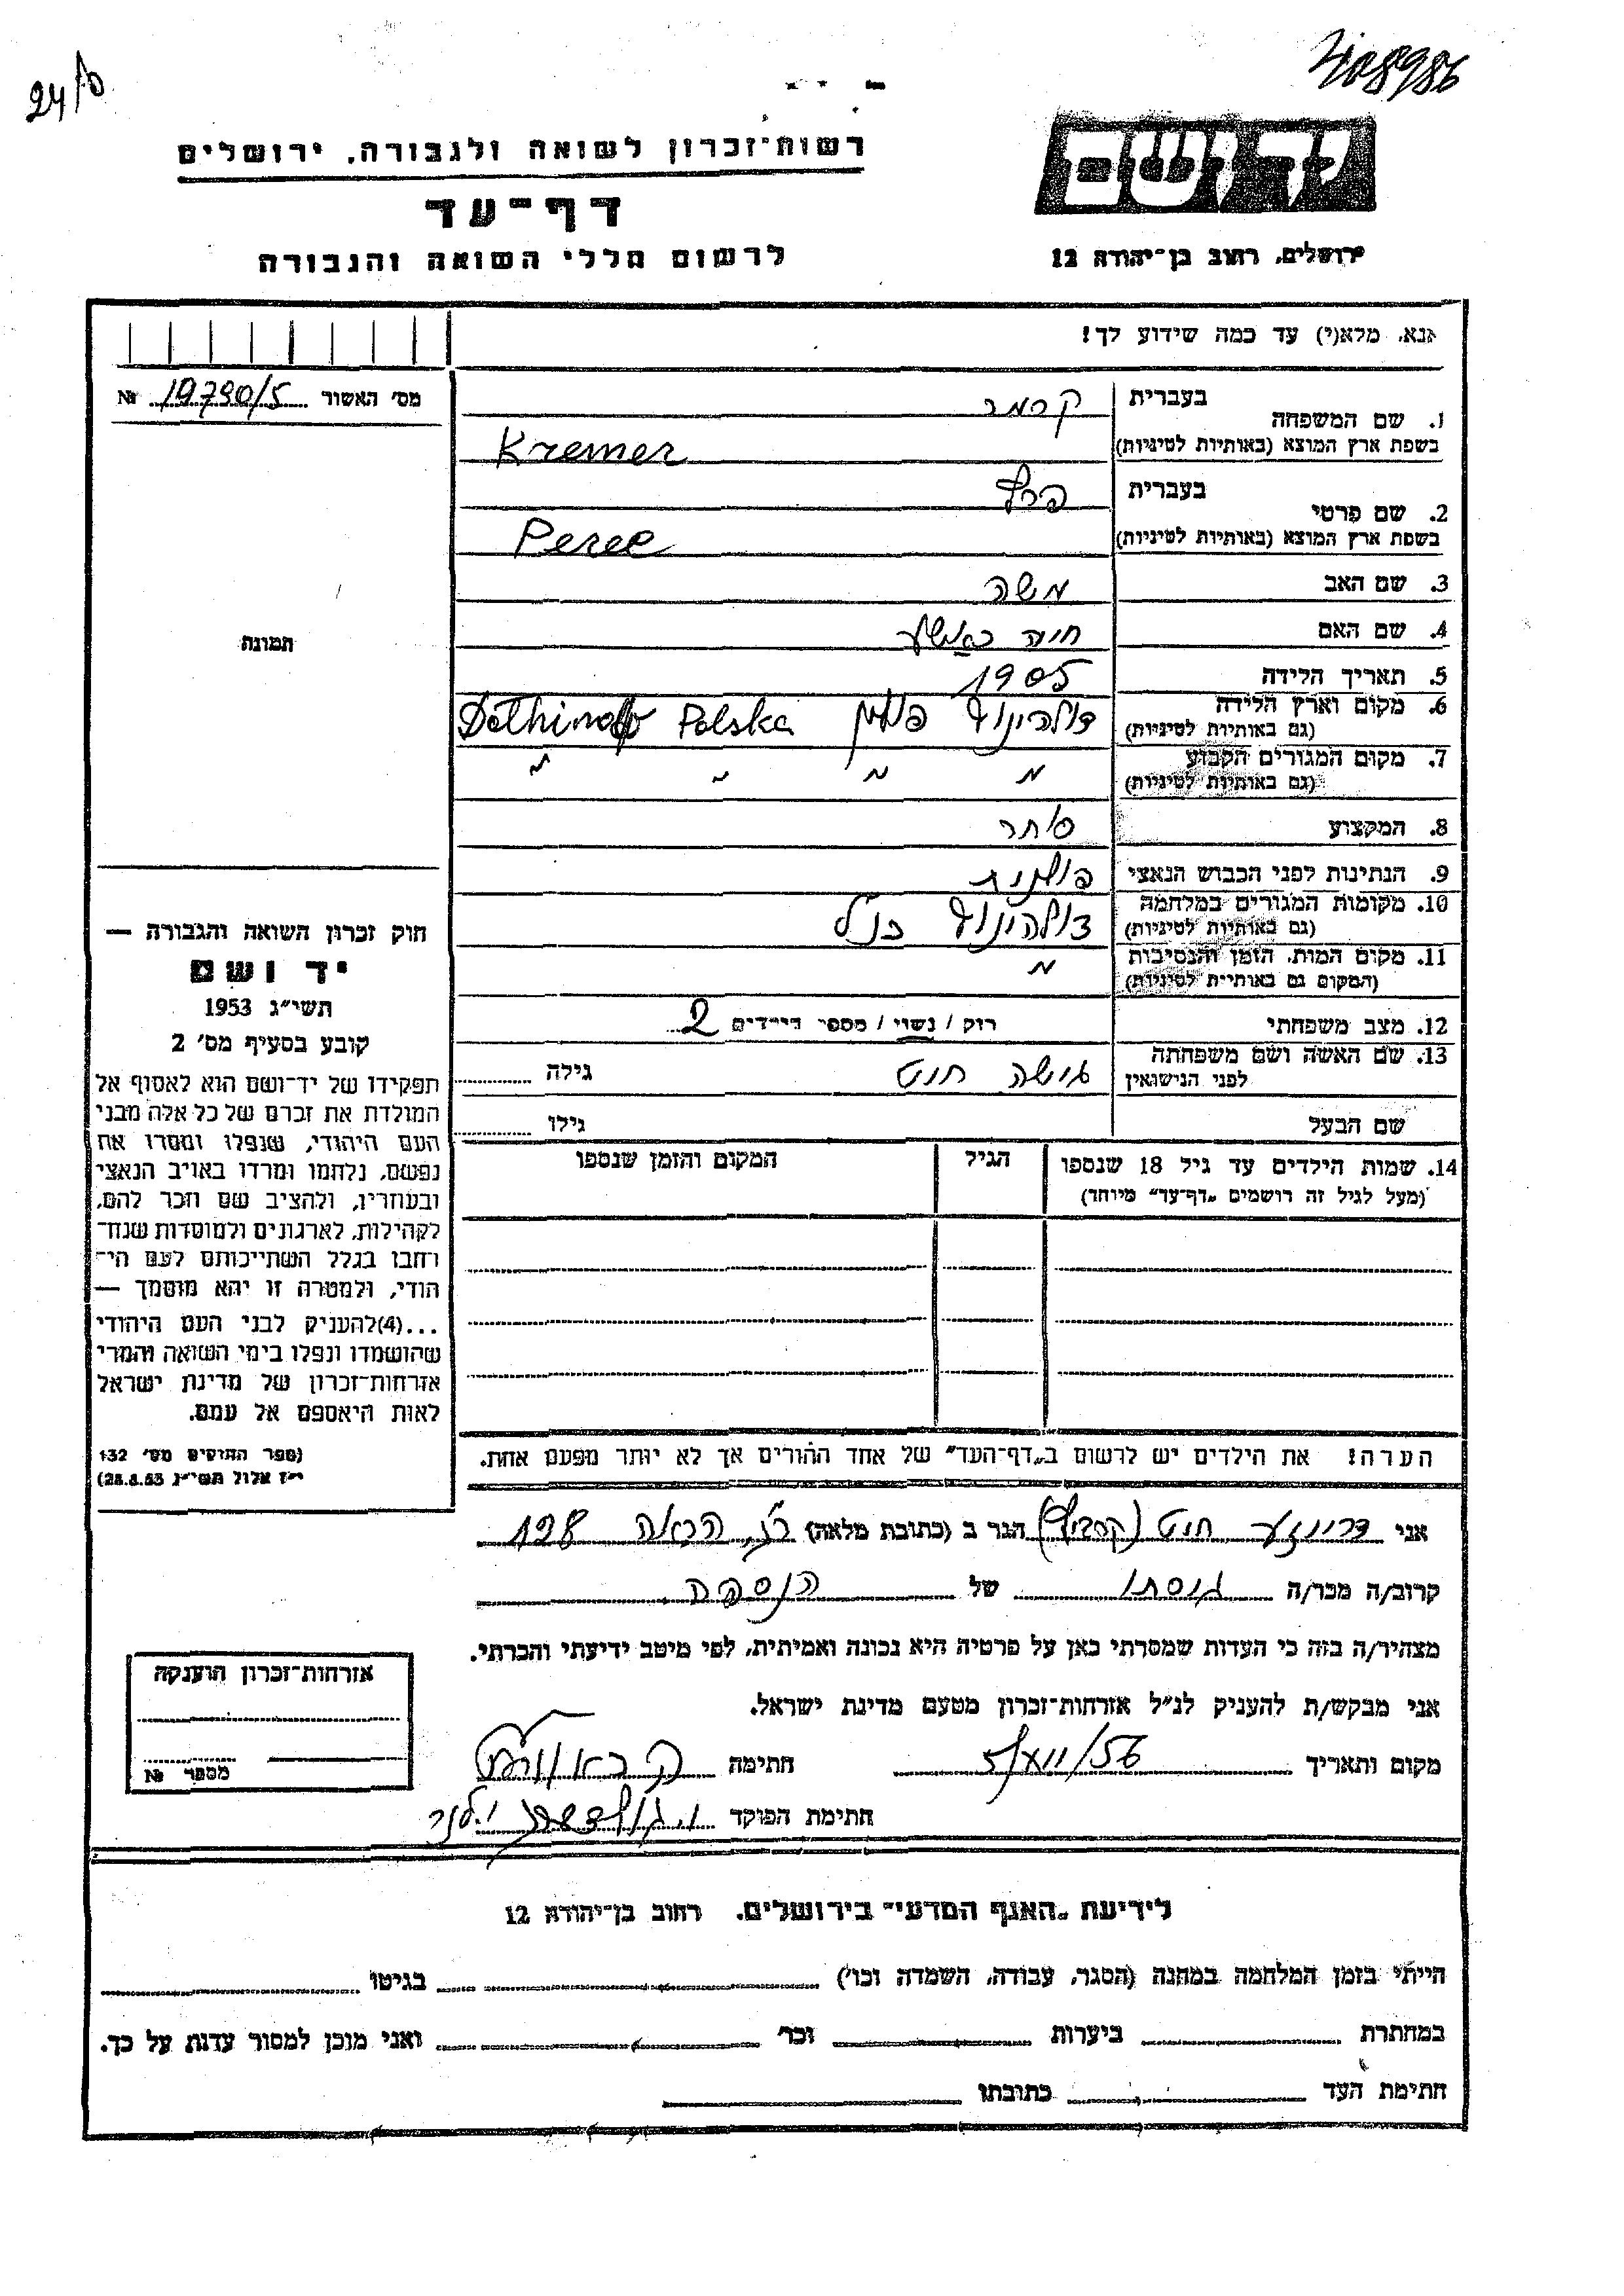 24/ס
408986
רשות־זכרון לשואה ולגבורה, ירושלים
יד ושם
דף־עד
לרשום חללי השואה והגבורה
ירושלים, רחוב בן־יהודה 12
אנא, מלא(י) עד כמה שידוע לך!
מס׳ האשור 19790/5 №
תמונה
1. שם המשפחה בעברית קרמר
בשפת ארץ המוצא (באותיות לטיניות) Kremer
2. שם פרטי בעברית פרץ
בשפת ארץ המוצא (באותיות לטיניות) Perec
3. שם האב משה
4. שם האם חיה
5. תאריך הלידה 1905
6. מקום וארץ הלידה דולהינוף פולין Dolhinoff Polska
(גם באותיות לטיניות)
7. מקום המגורים הקבוע " " " "
(גם באותיות לטיניות)
8. המקצוע סוחר
9. הנתינות לפני הכבוש הנאצי פולנית
10. מקומות המגורים במלחמה דולהינוף כנ"ל
(גם באותיות לטיניות)
11. מקום המות, הזמן והנסיבות "
(המקום גם באותיות לטיניות)
12. מצב משפחתי רוק / נשוי / מספר הילדים 2
13. שם האשה ושם משפחתה גישה חוט גילה
לפני הנישואין
שם הבעל גילו
14. שמות הילדים עד גיל 18 שנספו הגיל המקום והזמן שנספו
(מעל לגיל זה רושמים „דף־עד" מיוחד)
חוק זכרון השואה והגבורה —
יד ושם
תשי״ג 1953
קובע בסעיף מס׳ 2
תפקידו של יד־ושם הוא לאסוף אל
המולדת את זכרם של כל אלה מבני
העם היהודי, שנפלו ומסרו את
נפשם, נלחמו ומרדו באויב הנאצי
ובעוזריו, ולהציב שם וזכר להם,
לקהילות, לארגונים ולמוסדות שנח־
רחבו בגלל השתייכותם לעם הי־
הודי, ולמטרה זו יהא מוסמך —
...(4) להעניק לבני העם היהודי
שהושמדו ונפלו בימי השואה והמרי
אזרחות־זכרון של מדינת ישראל
לאות היאספם אל עמם.
(ספר החוקים מס׳ 132
י״ז אלול תשי״ג 28.8.53)
הערה! את הילדים יש לרשום ב„דף־העד" של אחד ההורים אך לא יותר מפעם אחת.
אני חוט הגר ב (כתובת מלאה) הרואה 128
קרוב/ה מכר/ה גיסתו של הנספה
מצהיר/ה בזה כי העדות שמסרתי כאן על פרטיה היא נכונה ואמיתית, לפי מיטב ידיעתי והכרתי.
אני מבקש/ת להעניק לנ״ל אזרחות־זכרון מטעם מדינת ישראל.
מקום ותאריך חתימה
חתימת הפוקד
אזרחות־זכרון הוענקה
מספר №
לידיעת „האגף המדעי" בירושלים, רחוב בן־יהודה 12
הייתי בזמן המלחמה במחנה (הסגר, עבודה, השמדה וכו׳) בגיטו
במחתרת ביערות וכו׳ ואני מוכן למסור עדות על כך.
חתימת העד כתובתו